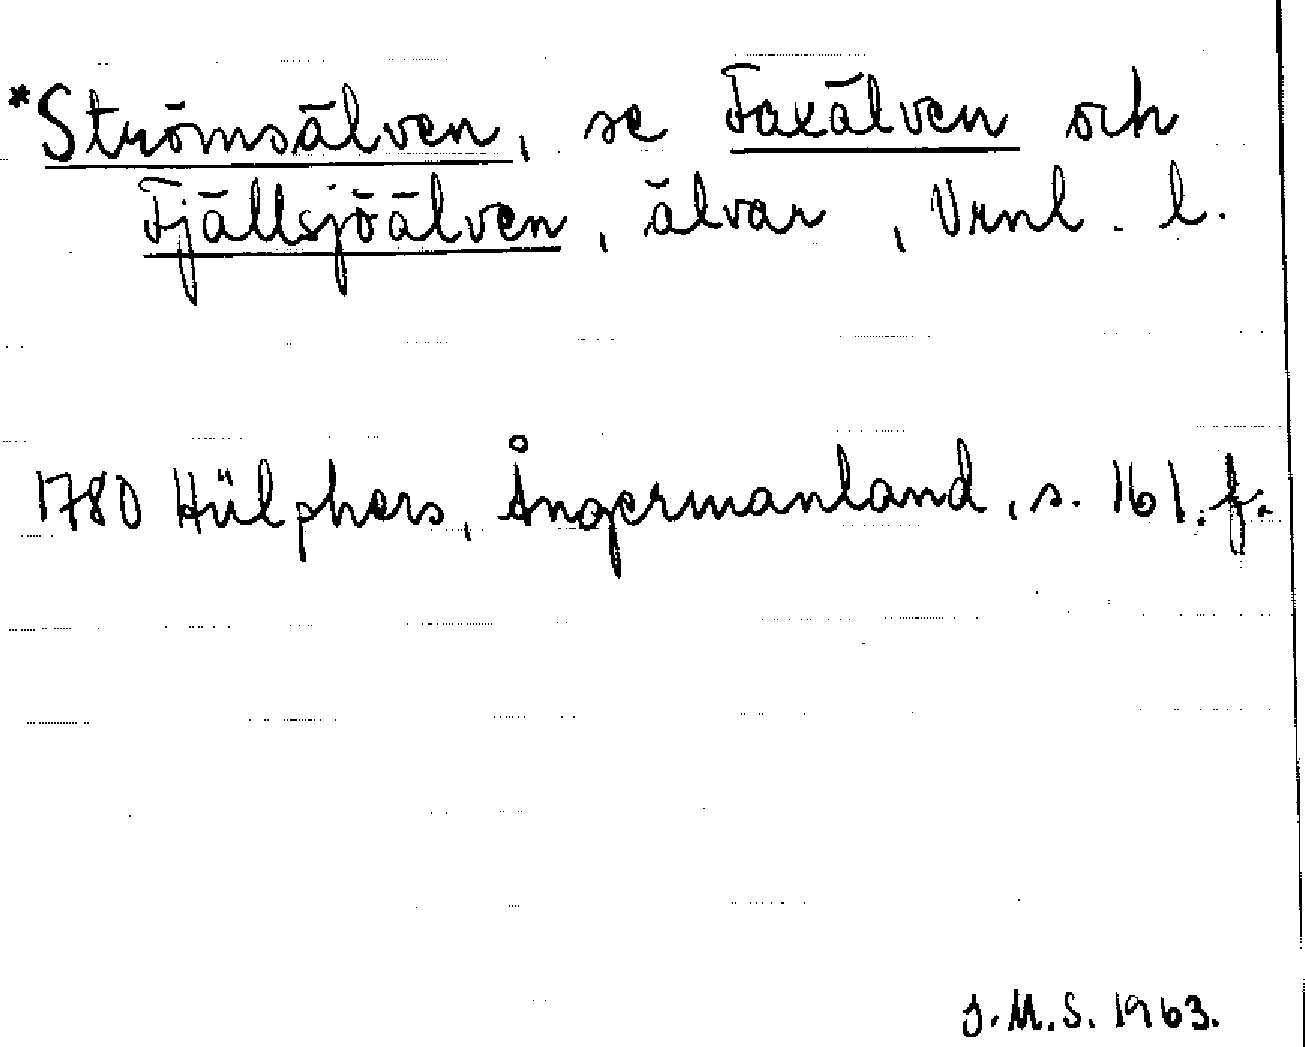 *Strömsälven, se Faxälven och
Fjällsjöälven, älvar, Vrnl. l.
1780 Hülphers, Ångermanland, s. 161. f.
J.M.S. 1963.